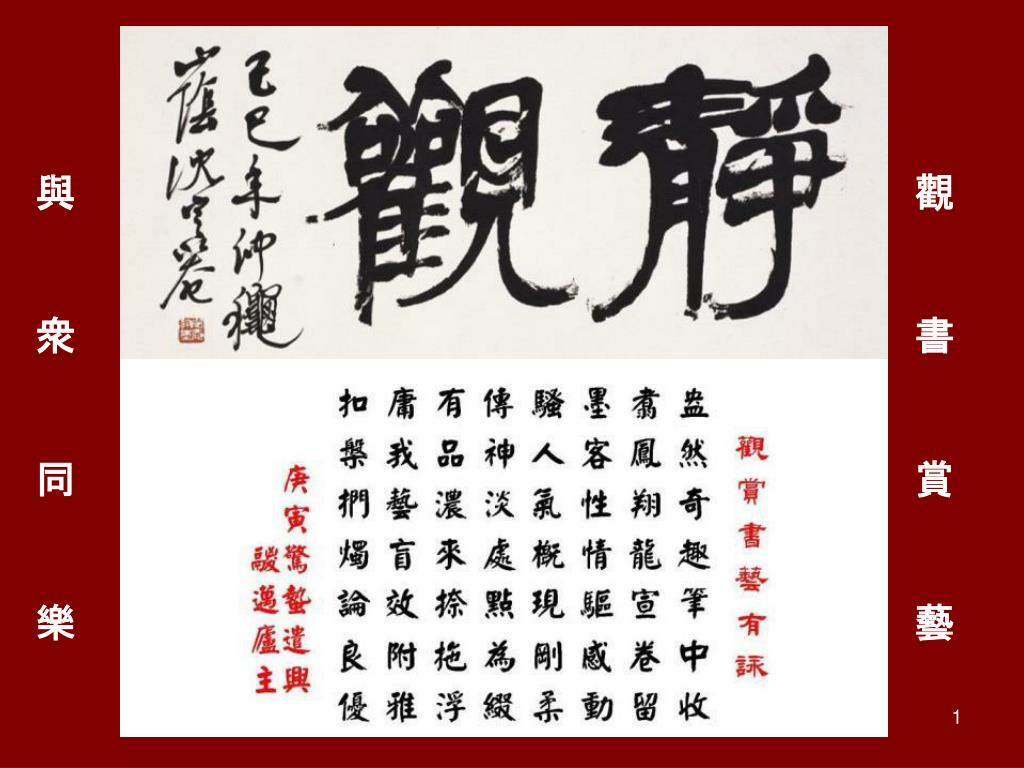 觀書賞藝
靜觀
己巳年仲穐
山陰沈定庵
觀賞書藝有詠
盎然奇趣筆中收
翥鳳翔龍宣卷留
墨客性情驅感動
騷人氣概現剛柔
傳神淡處點為綴
有品濃來捺拖浮
庸我藝盲效附雅
扣槃捫燭論良優
庚寅驚蟄遣興
邁廬主
與衆同樂
1